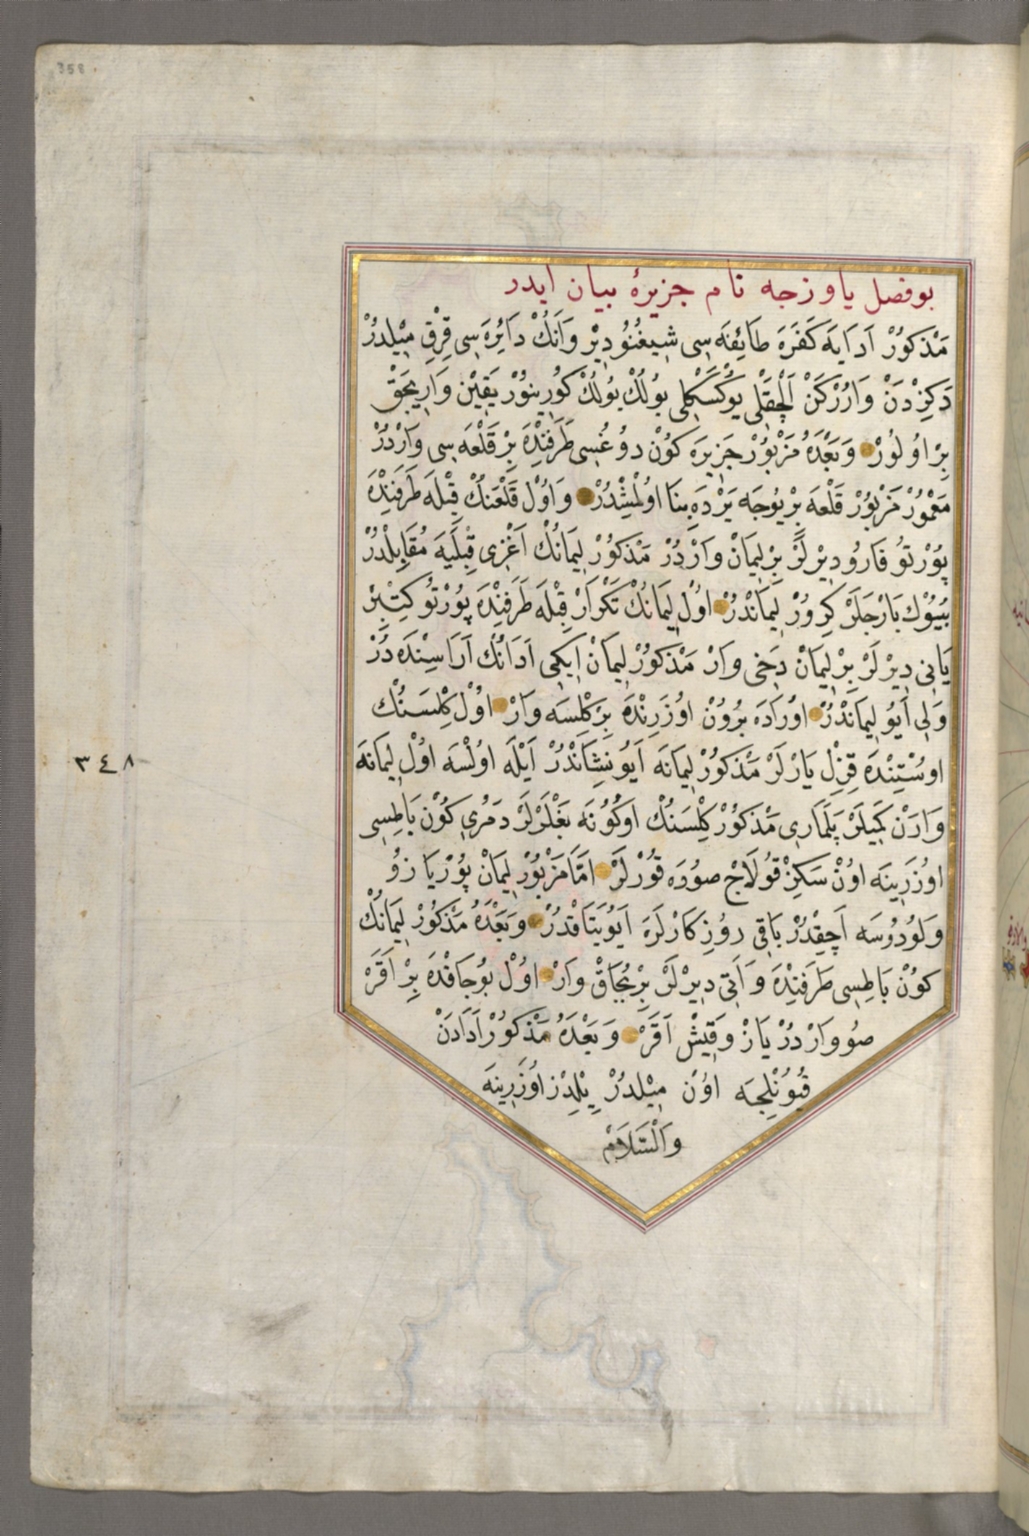 358
بو فصل ياوزجه نام جزيرۀ بيان ايدر
مَذْكُورْ اَدَايَه كَفَرَه طَائِفَه سِى شِيغْنُودِيرْ وَاَنُكْ دَايِرَه سِى قِرْقِ مِيْلدُرْ
دَكِزْدَنْ وَارُرْكَنْ اَلْچَقْلِى يُوكْسَكْلِى بُولُكْ بُولُكْ كُورِينُورْ يَقِيْن وَارِيجَقْ
بِرْ اُولُورْ وَبَعْدَهُ مَزْبُورْ جَزِيرَه كُونْ دُوغُسِى طَرَفِنْدَه بِرْ قَلْعَه سِى وَارْدُرْ
مَعْمُورْ مَزْبُورْ قَلْعَه بِرْ يُوجَه يَرْدَه بِنَا اُولْمِشْدُرْ وَاُولْ قَلْعَنُكْ قِبْلَه طَرَفِنْدَه
پُورْتُو فَارُو دِيرْلَرْ بِرْ لِيمَانْ وَارْدُرْ مَذْكُورْ لِيمَانُكْ اَغْزِى قِبْلَيَه مُقَابِلْدُرْ
بُيُوكْ بَارْجَلَرْ كِرُورْ لِيمَانْدُرْ اُولْ لِيمَانُكْ تَكْرَارْ قِبْلَه طَرَفِنْدَه پُورْتُو كِتِبْرْ
يَانِى دِيرْلَرْ بِرْ لِيمَانْ دَخِى وَارْ مَذْكُورْ لِيمَانْ اِيكِى اَدَانُكْ اَرَاسِنْدَه دُرْ
وَلِى اَيُو لِيمَانْدُرْ اُورَادَه بُرُونْ اُوزَرِنْدَه بِرْ كِلِسَه وَارْ اُولْ كِلِسَنُكْ
اُوسْتِنْدَه قِزِلْ يَارْلَرْ مَذْكُورْ لِيمَانَه اَيُو نِشَانْدُرْ اَيْلَه اُولْسَه اُولْ لِيمَانَه
وَارَنْ كَمِيلَرْ پَلَمَارِى مَذْكُورْ كِلْسَنُكْ اُوكُونَه بَغْلَرْلَرْ دَمُرِى كُونْ بَاطِسِى
اُوزَرِينَه اُونْ سَكِزْ قُولَاجْ صُودَه قُورْلَرْ اَمَّا مَزْبُورْ لِيمَانْ پُورْيَازُو
وَلُودُوسَه اَچِقْدُرْ بَاقِى رُوزِكَارْلَرَه اَيُو يَتَاقْدُرْ وَبَعْدَهُ مَذْكُورْ لِيمَانُكْ
كُونْ بَاطِسِى طَرَفِنْدَه وَاتِى دِيرْلَرْ بِرْ بُجَاقْ وَارْ اُولْ بُوجَاقْدَه بِرْ اَقَرْ
صُو وَارْدُرْ يَازْ وَقِيشْ اَقَرْ وَبَعْدَهُ مَذْكُورْ اَدَادَنْ
قُيُونْلِجَه اُونْ مِيْلدُرْ يِلْدِزْ اُوزَرِينَه
وَالسَّلَامْ
٣٤٨